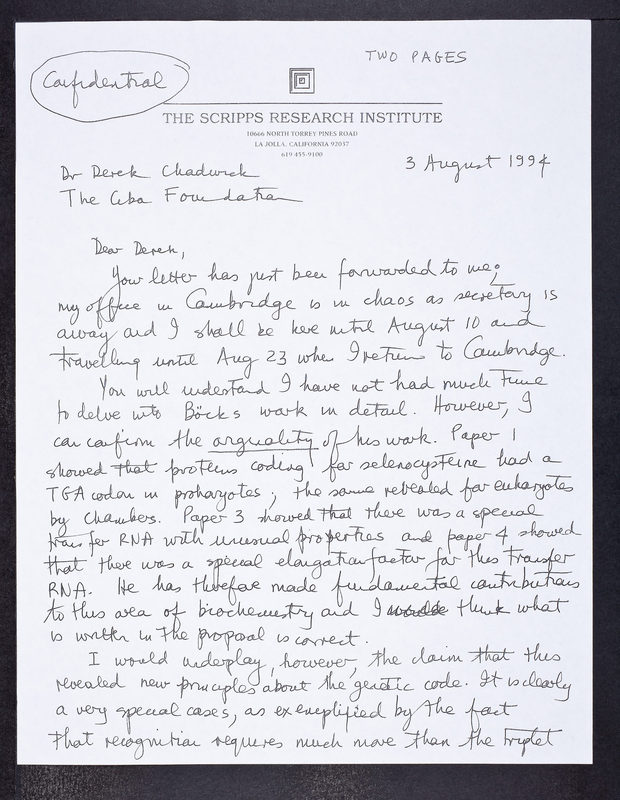 TWO PAGES
Confidential
THE SCRIPPS RESEARCH INSTITUTE
10666 NORTH TORREY PINES ROAD
LA JOLLA, CALIFORNIA 92037
619 455-9100
3 August 1994
Dr Derek Chadwick
The Ciba Foundation
Dear Derek,
Your letter has just been forwarded to me;
my office in Cambridge is in chaos as secretary is
away and I shall be here until August 10 and
travelling until Aug 23 when I return to Cambridge.
You will understand I have not had much time
to delve into Böck's work in detail. However, I
can confirm the originality of his work. Paper 1
showed that proteins coding for selenocysteine had a
TGA codon in prokaryotes; the same revealed for eukaryotes
by Chambers. Paper 3 showed that there was a special
transfer RNA with unusual properties and paper 4 showed
that there was a special elongation factor for this transfer
RNA. He has therefore made fundamental contributions
to this area of biochemistry and I think what
is written in the proposal is correct.
I would underplay, however, the claim that this
revealed new principles about the genetic code. It is clearly
a very special cases, as exemplified by the fact
that recognition requires much more than the triplet